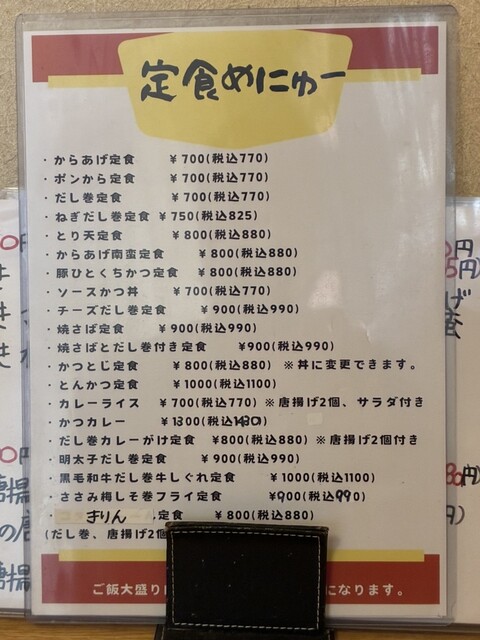 定食めにゅー
・からあげ定食 ¥700(税込770)
・ポンから定食 ¥700(税込770)
・だし巻定食 ¥700(税込770)
・ねぎだし巻定食 ¥750(税込825)
・とり天定食 ¥800(税込880)
・からあげ南蛮定食 ¥800(税込880)
・豚ひとくちかつ定食 ¥800(税込880)
・ソースかつ丼 ¥700(税込770)
・チーズだし巻定食 ¥900(税込990)
・焼さば定食 ¥900(税込990)
・焼さばとだし巻付き定食 ¥900(税込990)
・かつとじ定食 ¥800(税込880) ※丼に変更できます。
・とんかつ定食 ¥1000(税込1100)
・カレーライス ¥700(税込770) ※唐揚げ2個、サラダ付き
・かつカレー ¥1300(税込1430)
・だし巻カレーがけ定食 ¥800(税込880) ※唐揚げ2個付き
・明太子だし巻定食 ¥900(税込990)
・黒毛和牛だし巻牛しぐれ定食 ¥1000(税込1100)
・ささみ梅しそ巻フライ定食 ¥900(税込990)
・きりん 定食 ¥800(税込880)
(だし巻、唐揚げ2個
ご飯大盛り になります。